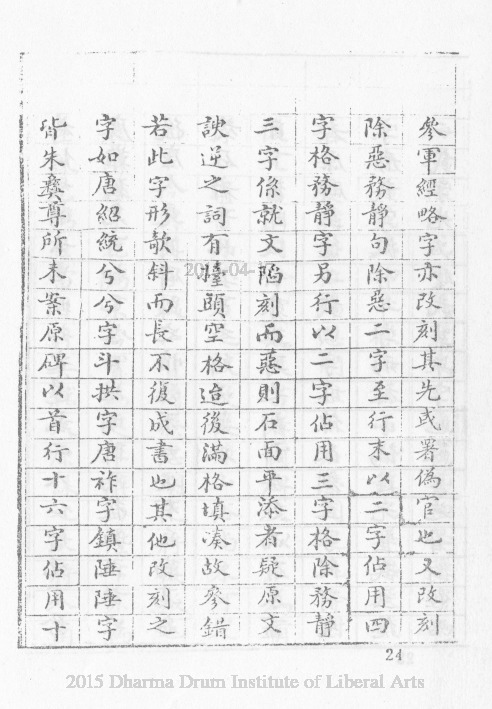 參軍經略字亦改刻其先或署偽官也又改刻
除惡務靜句除惡二字至行末以二字佔用四
字格務靜字另行以二字佔用三字格除務靜
三字係就文陷刻而惡則石面平添者疑原文
諛逆之詞有擡頭空格迨後滿格填湊故參錯
若此字形欹斜而長不復成書也其他改刻之
字如唐紹統兮兮字斗拱字唐祚字鎮陲陲字
皆朱彝尊所未案原碑以首行十六字佔用十
24
2015 Dharma Drum Institute of Liberal Arts